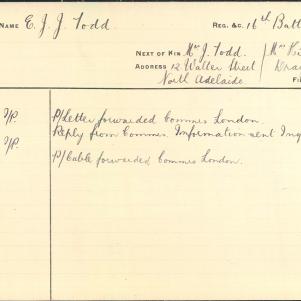 NAME E. J. J. Todd REG. &C. 16th Batt
NEXT OF KIN Mr J. Todd.
ADDRESS 12 Walter Street
North Adelaide
P/Letter forwarded Commrs London.
Reply from Commrs. Information sent Inq
P/Cable forwarded Commrs London.